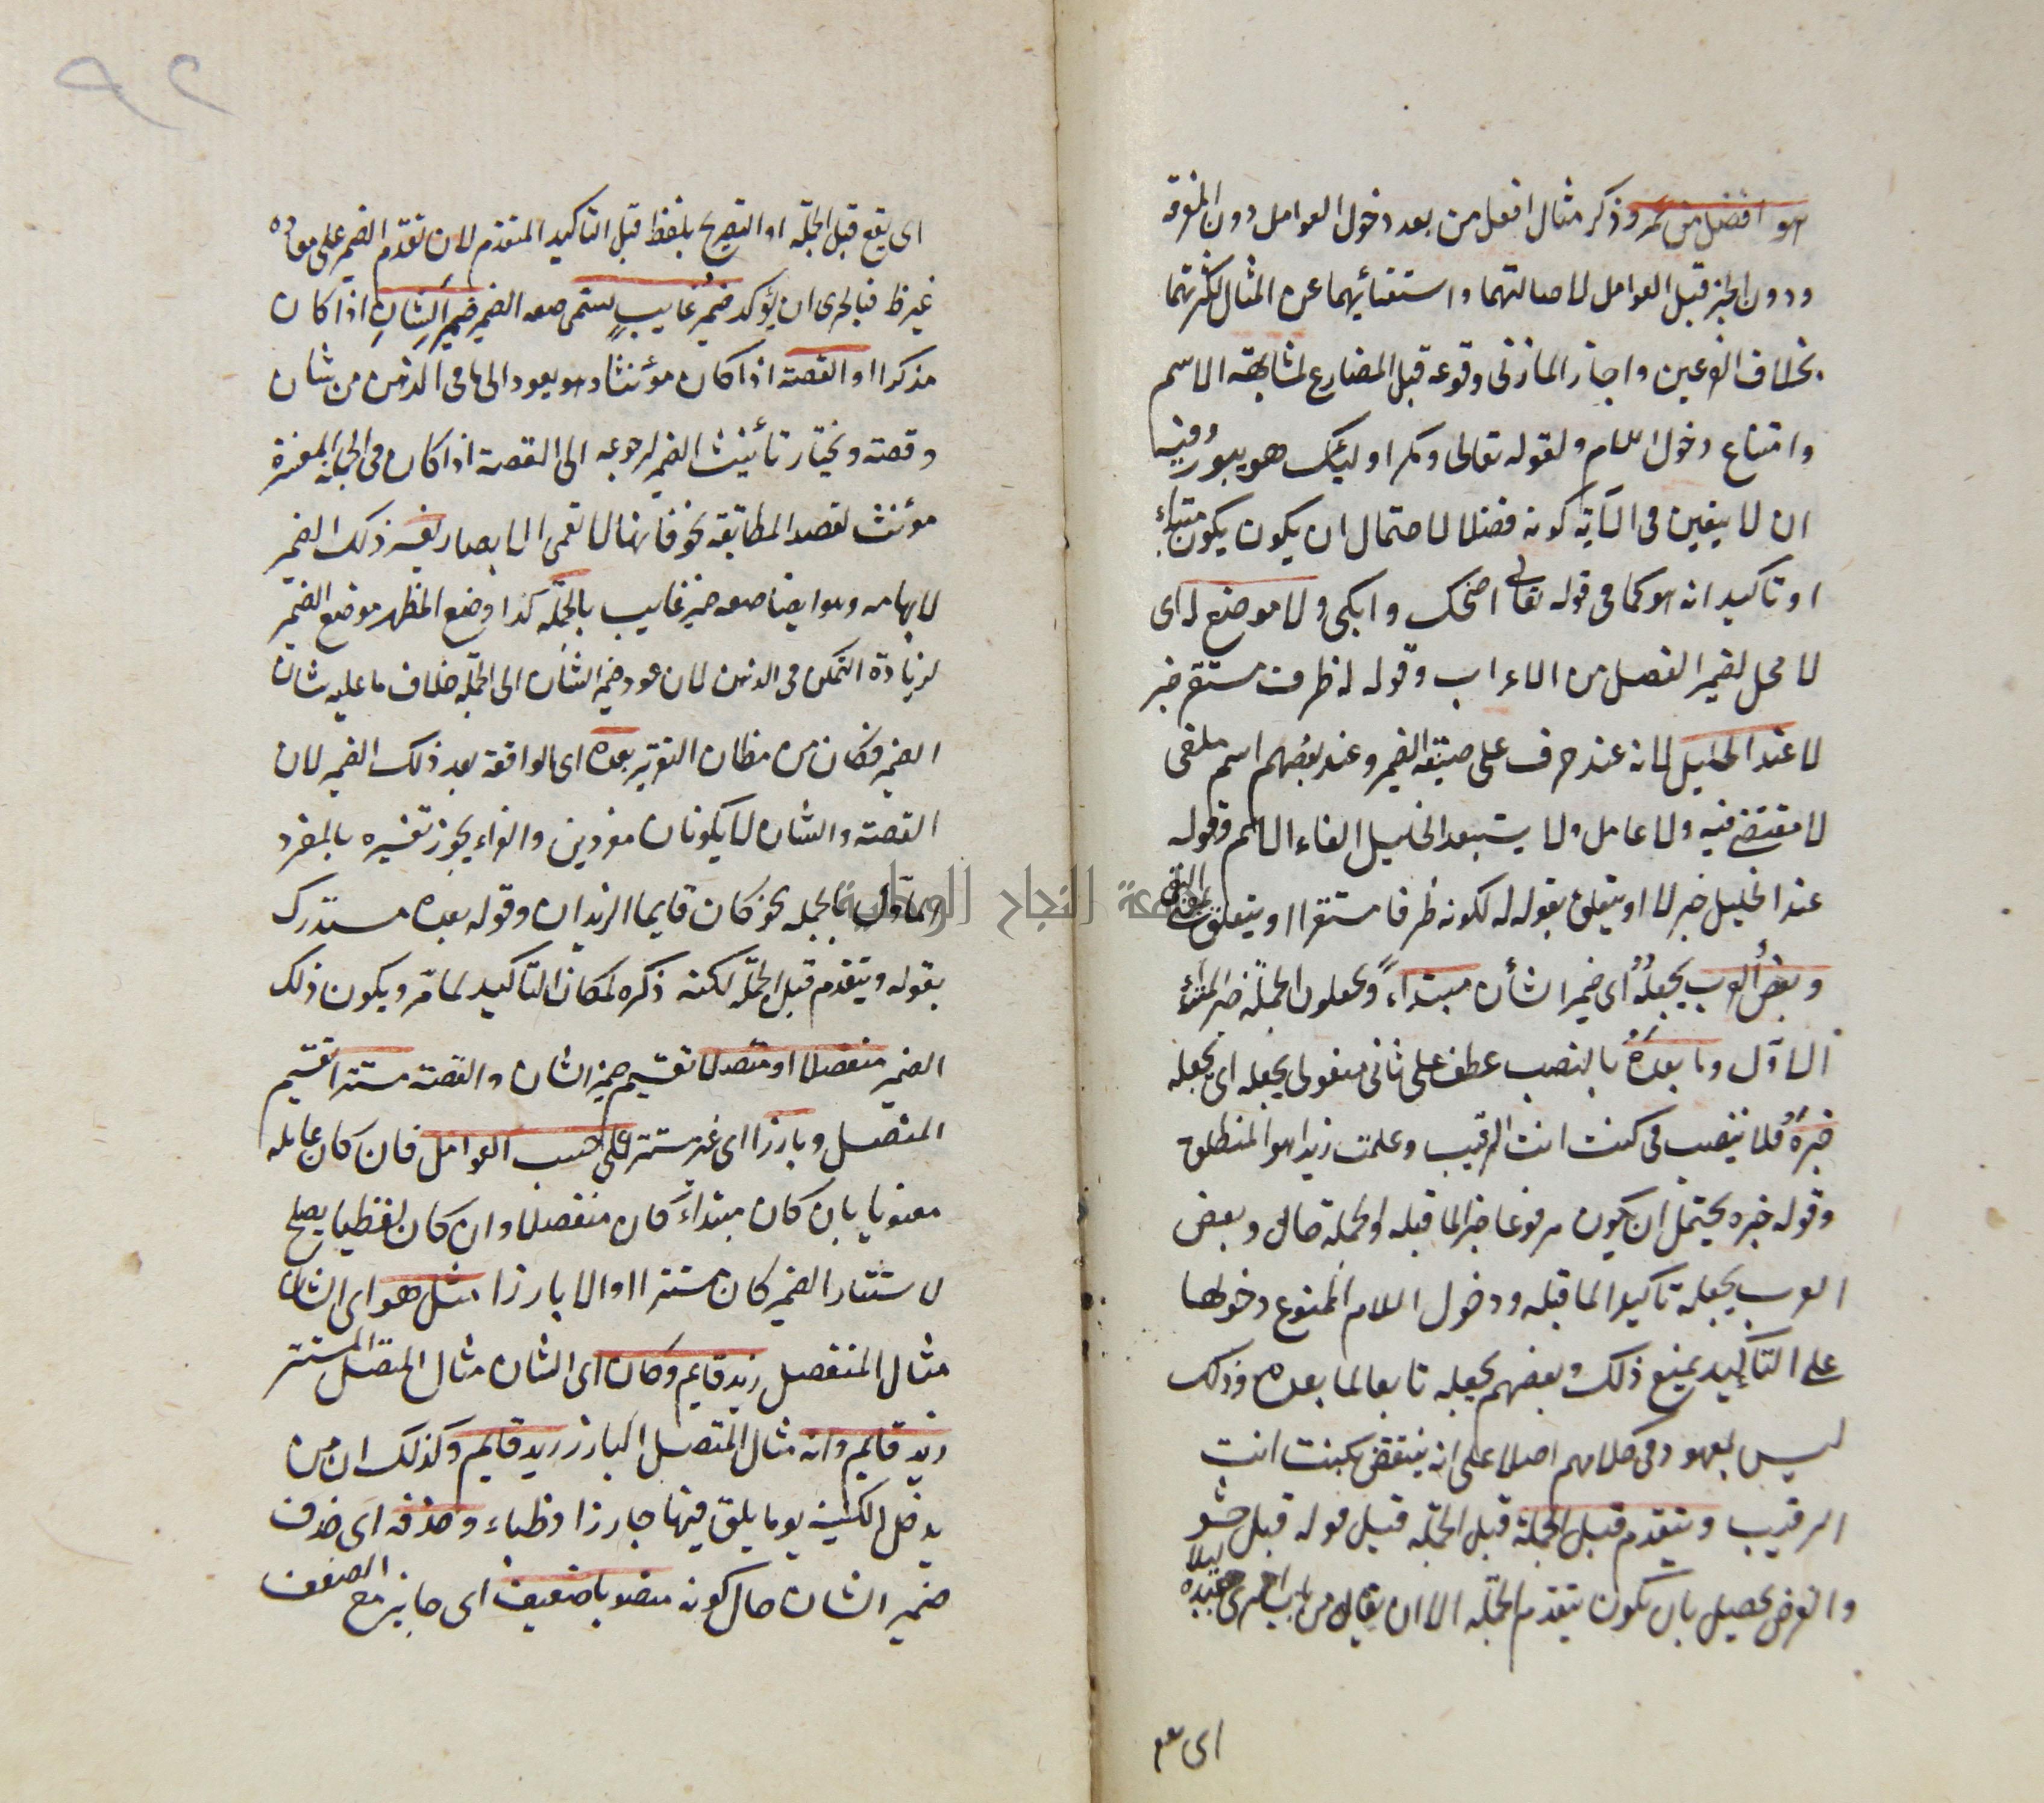 هو افضل من عمرو ذكر مثال افعل من بعد دخول العوامل دون المعرفة
ودون الخبر قبل العوامل لاصالتهما واستغنائهما عن المثال لكثرتهما
بخلاف الفرعين واجاز المازنى وقوعه قبل المضارع لمشابهته الاسم
وامتناع دخول اللام ولقوله تعالى ومكر اولئك هو يبور وفيه
ان لا يتعين فى الآية كونه فصلا لاحتمال ان يكون يكون مبتداء
او تاكيد انه هو كما فى قوله تعالى اضحك وابكى ولا موضع له اى
لا محل لضمير الفصل من الاعراب وقوله له ظرف مستقر خبر
لا عند الخليل لانه عند حرف على صيغة الضمير وعند بعضهم اسم ملغى
لا مقتضى فيه ولا عامل ولا يستبعد الخليل الغاء الاسم وقوله
عند الخليل خبر لا او يتعلق بقوله له لكونه ظرفا مستقرا او يتعلق بمعنى النفى
وبعض العرب يجعله اى ضمير الشأن مبتداء ويجعلون الجملة خبر المبتداء
الاول وما بعده بالنصب عطف على ثانى مفعولى يجعله اى يجعله
خبره فلا ينتصب فى كنت انت الرقيب وعلمت زيدا هو المنطلق
وقوله خبره يحتمل ان يكون مرفوعا خبرا لما قبله والجملة حال وبعض
العرب يجعله تاكيدا لما قبله ودخول اللام الممنوع دخولها
على التأكيد يمنع ذلك وبعضهم يجعله تابعا لما بعده وذلك
ليس بمعهود فى كلامهم اصلا على انه ينتقض بكنت انت
الرقيب ويتقدم قبل الجملة قبل الجملة قيل قوله قبل حشو
والغرض يحصل بان يكون يتقدم الجملة الا ان يقال من باب اسرى بعبده ليلا
اى يقع
٩٢
اى يقع قبل الجملة او التصريح بلفظ قبل التاكيد المتقدم لان تقدم الضمير على معاده
غير ظ فبالحرى ان يؤكد ضمير غايب يسمى صفة الضمير ضمير الشان اذا كان
مذكرا او القصة اذا كان مؤنثا وهو يعود الى ما فى الذهن من شان
وقصة ويختار تأنيث الضمير لرجوعه الى القصة اذا كان فى الجملة المفسرة
مؤنث لقصد المطابقة نحو فانها لا تعمى الابصار يفسر ذلك الضمير
لابهامه وهو ايضا صفة ضمير غايب بالجملة كذا وضع المظهر موضع الضمير
لزيادة التمكن فى الذهن لان عود ضمير الشان الى الجملة خلاف ما عليه شان
الضمير فكان من مظان التقرير بعده اى الواقعة بعد ذلك الضمير لان
القصة والشان لا يكونان مفردين والفراء يجوز تفسيره بالمفرد
المأول بالجملة نحو كان قايما الزيدان وقوله بعده مستدرك
بقوله ويتقدم قبل الجملة لكنه ذكره لمكان التاكيد لما مر ويكون ذلك
الضمير منفصلا او متصلا تقسيم ضمير الشان والقصة مستترا تقسيم
المتصل وبارزا اى غير مستتر على حسب العوامل فان كان عامله
معنويا بان كان مبتداء كان منفصلا وان كان لفظيا يصلح
لاستتار الضمير كان مستترا او الا بارزا مثل هو اى الشان
مثال المنفصل زيد قايم وكان اى الشان مثال المتصل المستتر
زيد قايم وانه مثال المتصل البارز زيد قايم وكذلك ان من
يدخل الكنيسة يوما يلق فيها جاذرا وظباء وحذفه اى حذف
ضمير الشان حال كونه منصوبا ضعيف اى جايز مع الضعف
جامعة النجاح الوطنية